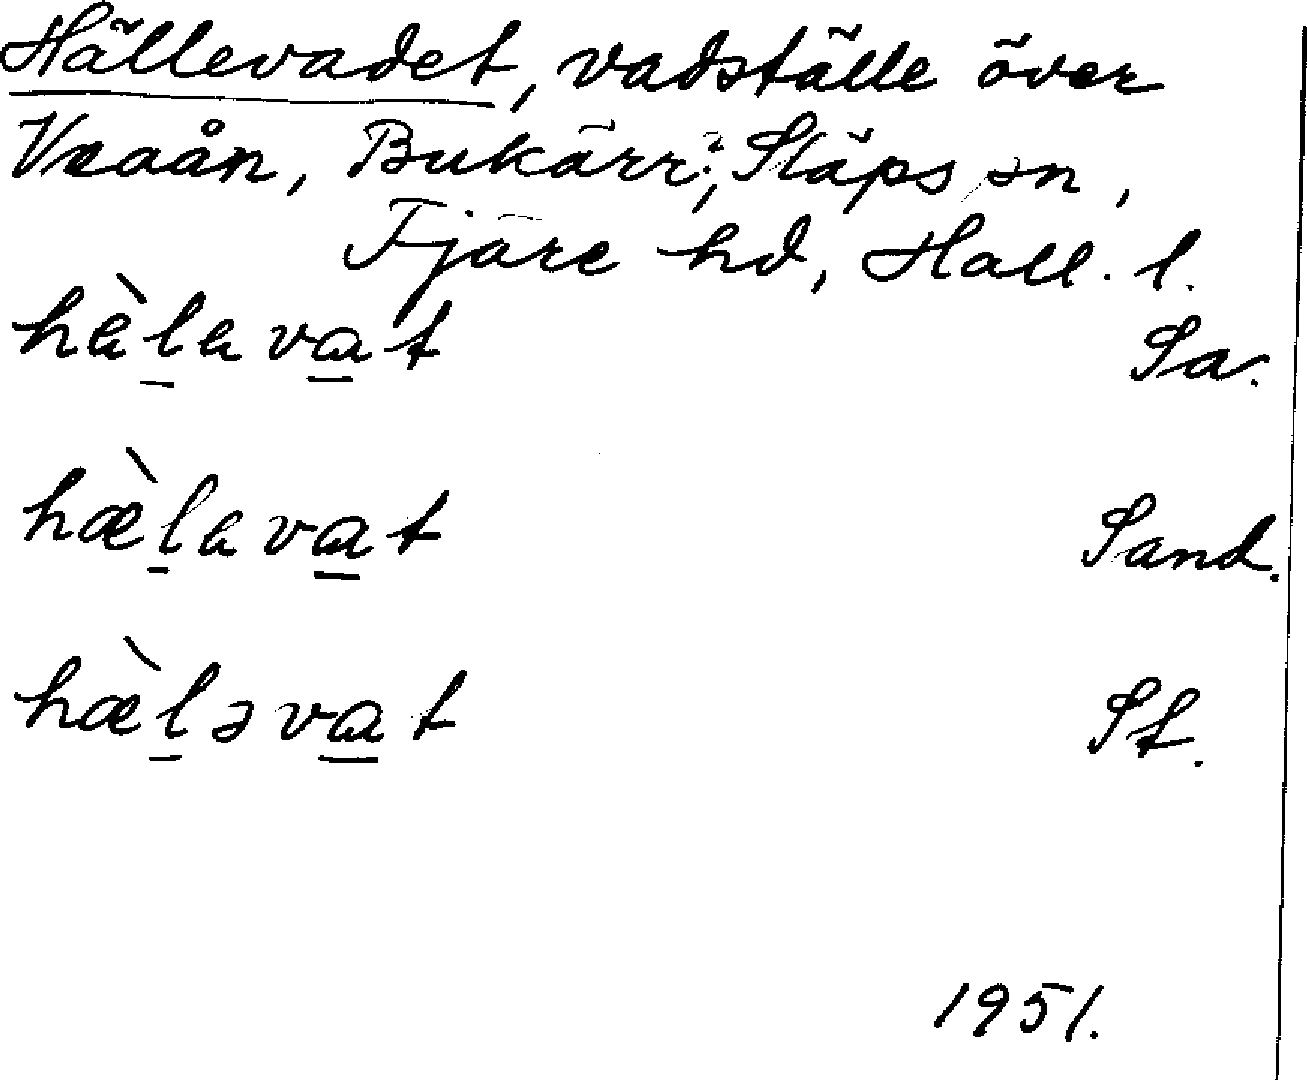 Hällevadet, vadställe över
Vraån, Bukärr², Släps sn,
Fjäre hd, Hall. l.
hæ̀lavat Sa.
hæ̀lavat Sand.
hæ̀ləvat St.
1951.